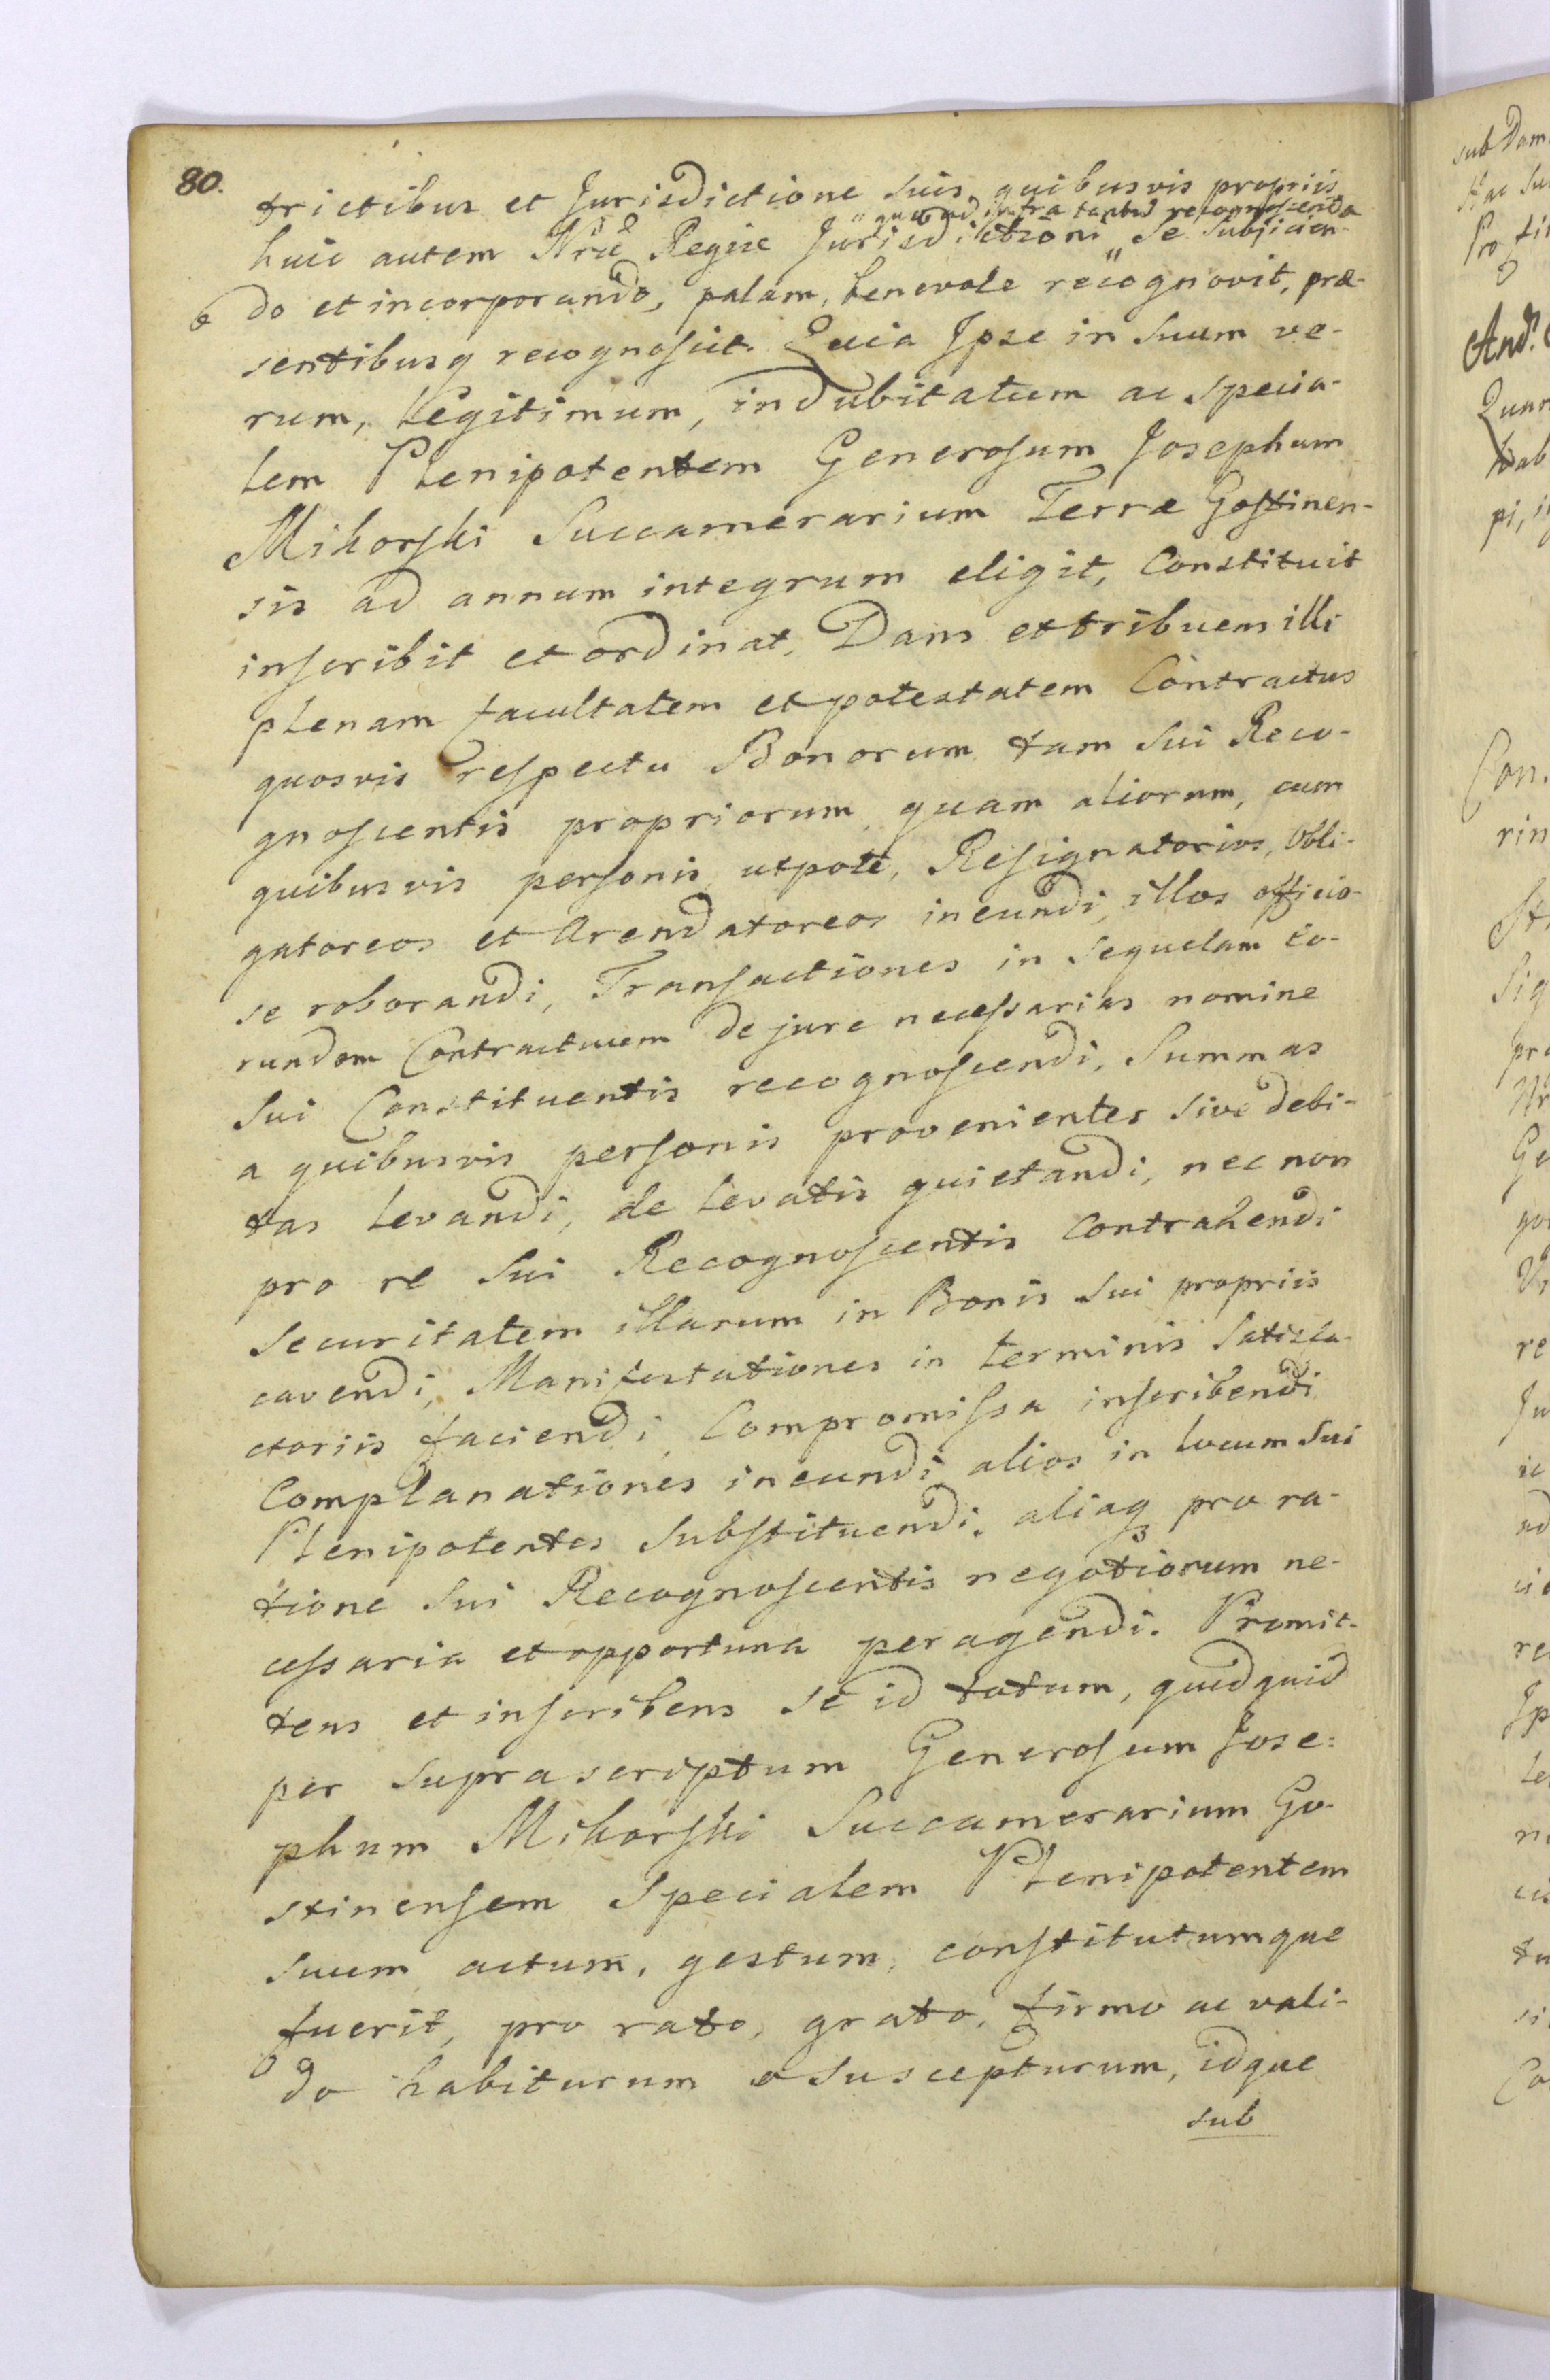 80.
trictibus et Jurisdictione suis quibusvis propriis
" quo ad infra tantum recognoscenda
huic autem Nrae Regiae Jurisdictioni " se subjicien-
do et incorporando, palam, benevole recognovit, prae-
sentibusq recognoscit. Quia Ipse in suum ve-
rum, Legitimum, indubitatum ac specia-
lem Plenipotentem Generosum Josephum
Mikorski Succamerarium Terrae Gostinen-
sis ad annum integrum eligit, Constituit
inscribit et ordinat, Dans et tribuens illi
plenam facultatem et potestatem Contractus
quosvis respectu Bonorum tam sui Reco-
gnoscentis propriorum quam aliorum, cum
quibusvis personis utpote, Resignatorios, Obli-
gatoreos et Arendatoreos ineundi, illos officio-
se roborandi, Transactiones in sequelam eo-
rundem Contractuum de jure necessarias nomine
sui Constituentis recognoscendi, Summas
a quibusvis personis provenientes sive debi-
tas levandi, de levatis quietandi, nec non
pro re sui Recognoscentis Contrahendi
securitatem illarum in Bonis sui propriis
cavendi, Manifestationes in terminis satisfa-
ctoriis faciendi, Compromissa inscribendi
Complanationes ineundi, alios in locum sui
Plenipotentes substituendi, aliaq pro ra-
tione sui Recognoscentis negotiorum ne-
cessaria et opportuna peragendi. Promit-
tens et inscribens se id totum, quidquid
per suprascriptum Generosum Jose=
phum Mikorski Succamerarium Go-
stinensem specialem Plenipotentem
suum actum, gestum, constitutumque
fuerit, pro rato, grato, firmo ac vali-
do habiturum & suscepturum, idque
sub